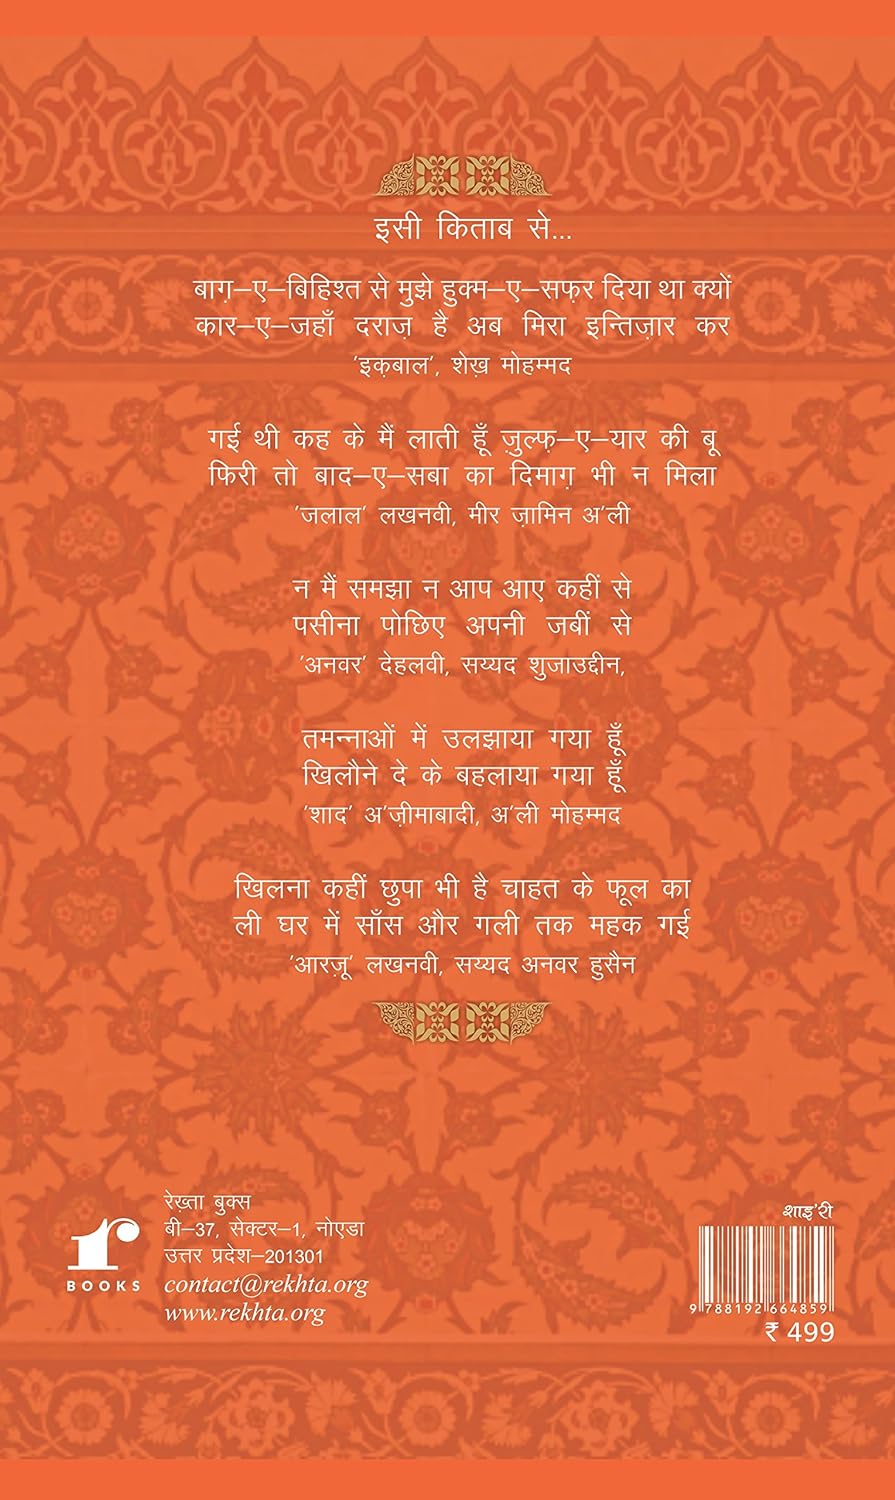 इसी किताब से...
बाग़–ए–बिहिश्त से मुझे हुक्म–ए–सफ़र दिया था क्यों
कार–ए–जहाँ दराज़ है अब मिरा इन्तिज़ार कर
'इक़बाल', शेख़ मोहम्मद
गई थी कह के मैं लाती हूँ ज़ुल्फ़–ए–यार की बू
फिरी तो बाद–ए–सबा का दिमाग़ भी न मिला
'जलाल' लखनवी, मीर ज़ामिन अ'ली
न मैं समझा न आप आए कहीं से
पसीना पोछिए अपनी जबीं से
'अनवर' देहलवी, सय्यद शुजाउद्दीन,
तमन्नाओं में उलझाया गया हूँ
खिलौने दे के बहलाया गया हूँ
'शाद' अ'ज़ीमाबादी, अ'ली मोहम्मद
खिलना कहीं छुपा भी है चाहत के फूल का
ली घर में साँस और गली तक महक गई
'आरज़ू' लखनवी, सय्यद अनवर हुसैन
r
BOOKS
रेख़्ता बुक्स
बी–37, सेक्टर–1, नोएडा
उत्तर प्रदेश–201301
contact@rekhta.org
www.rekhta.org
शाइ'री
9 788192 664859
₹ 499